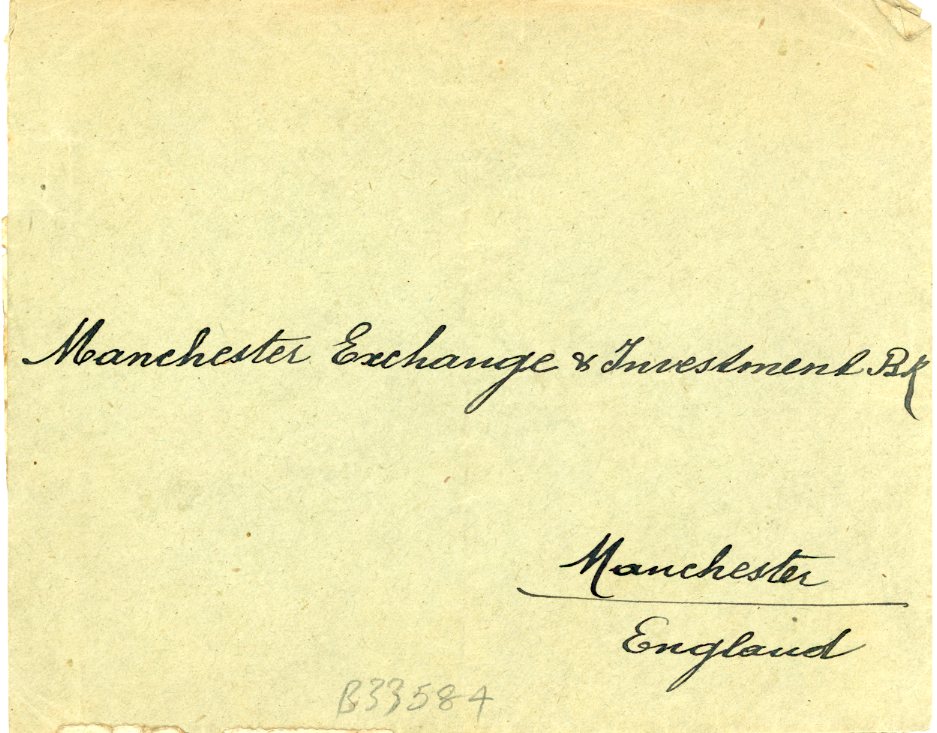 Manchester Exchange & Investment Bk
Manchester
England
B33584